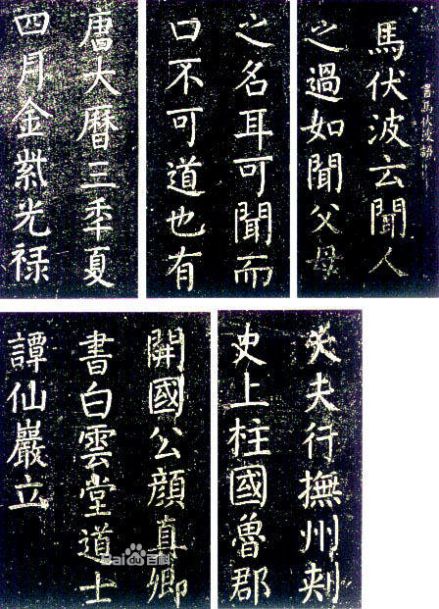 書馬伏波語
馬伏波云聞人
之過如聞父母
之名耳可聞而
口不可道也有
唐大曆三秊夏
四月金紫光禄
大夫行撫州刾
史上柱國魯郡
開國公顔真卿
書白雲堂道士
譚仙巖立
Bai百科